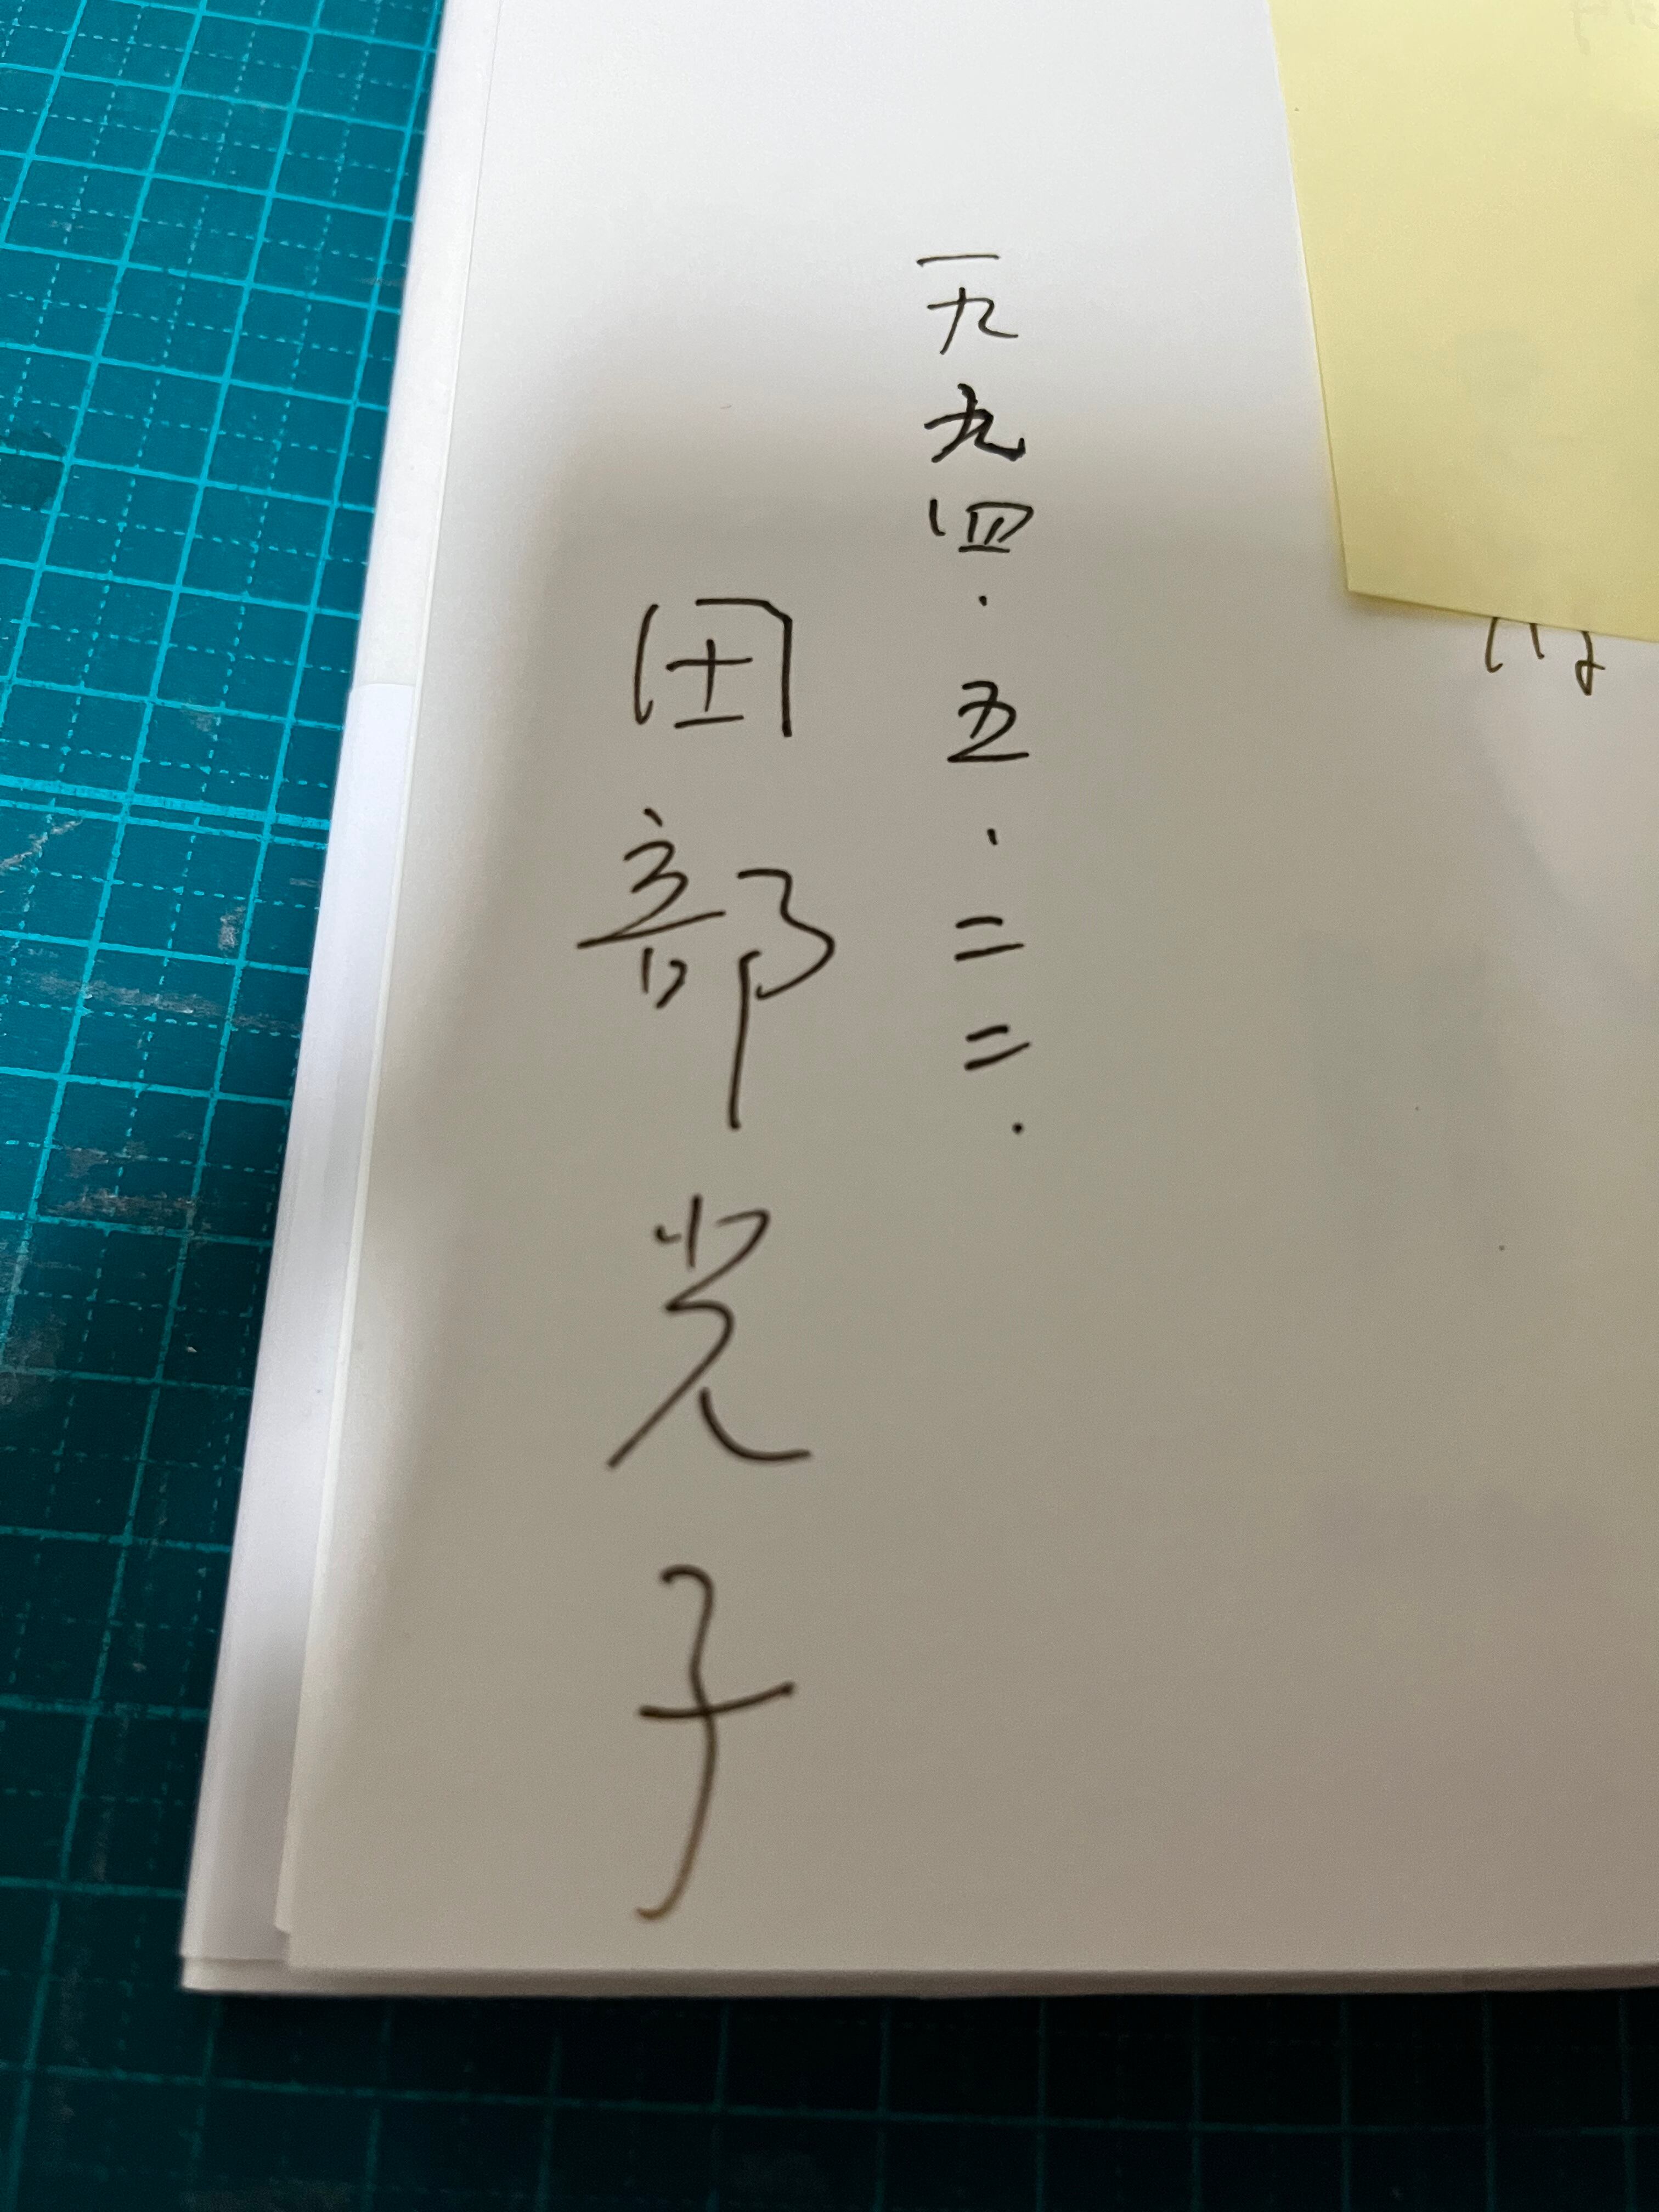 一九九四・五・二二.
田部光子